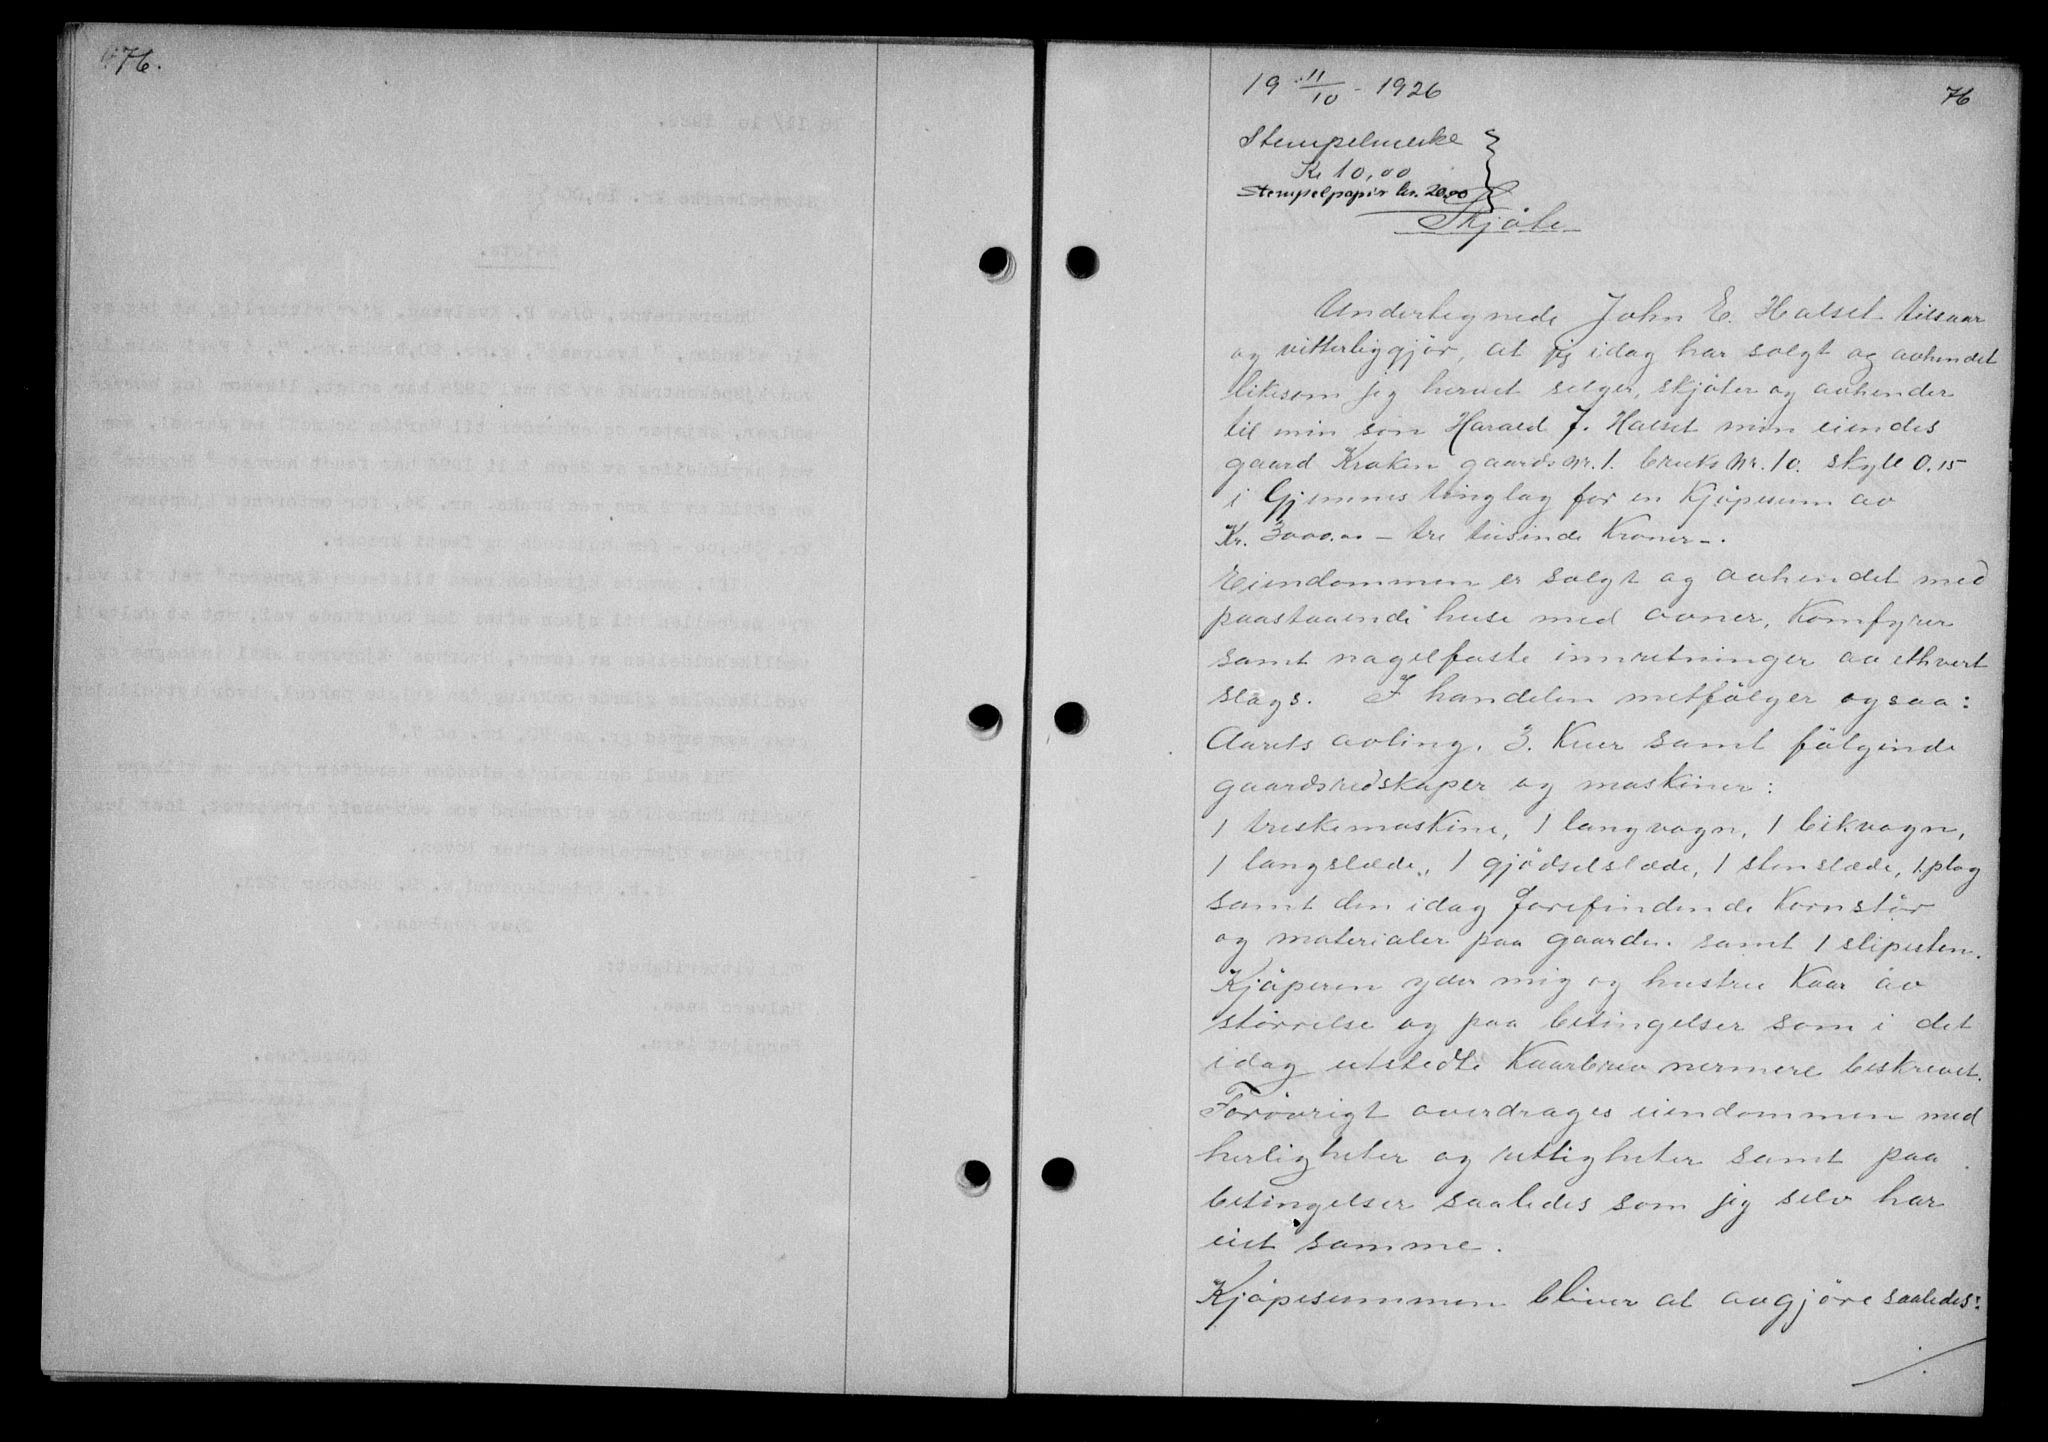 76.
19 11/10 - 1926
76
Stempelmerke
Kr 10,00
Stempelpapir kr. 20.00
Skjöte
Undertegnede John E. Halset tilstaar
og vitterliggjör, at jeg idag har solgt og avhendet
likesom jeg hervet selger, skjöter og avhender
til min sön Harald J. Halset min eiendes
gaard Kroken gaards Nr. 1. bruks Nr. 10. skyld 0.15
i Gjemnes tinglag for en Kjöpesum av
Kr. 3000.00 - tre tusinde Kroner -.
Eiendommen er solgt og avhendet med
paastaaende huse med ovner, Komfyrer
samt nagelfaste innretninger av ethvert
slags. I handelen metfölger ogsaa:
Aarets avling, 3. Kuer samt fölgende
gaardsredskaper og maskiner:
1 treskemaskine, 1 langvogn, 1 bikvogn,
1 langslæde, 1 gjödselslæde, 1 stenslæde, 1 plog
samt den idag forefindende Kornstör
og materialer paa gaarden. samt 1 slipesten.
Kjöperen yder mig og hustru Kaar av
störrelse og paa betingelser som i det
idag utstedte Kaarbrev nermere beskrevet.
Forövrigt overdrages eiendommen med
herligheter og rettigheter samt paa
betingelser saaledes som jeg selv har
eiet samme.
Kjöpesummen bliver at avgjöre saaledes: